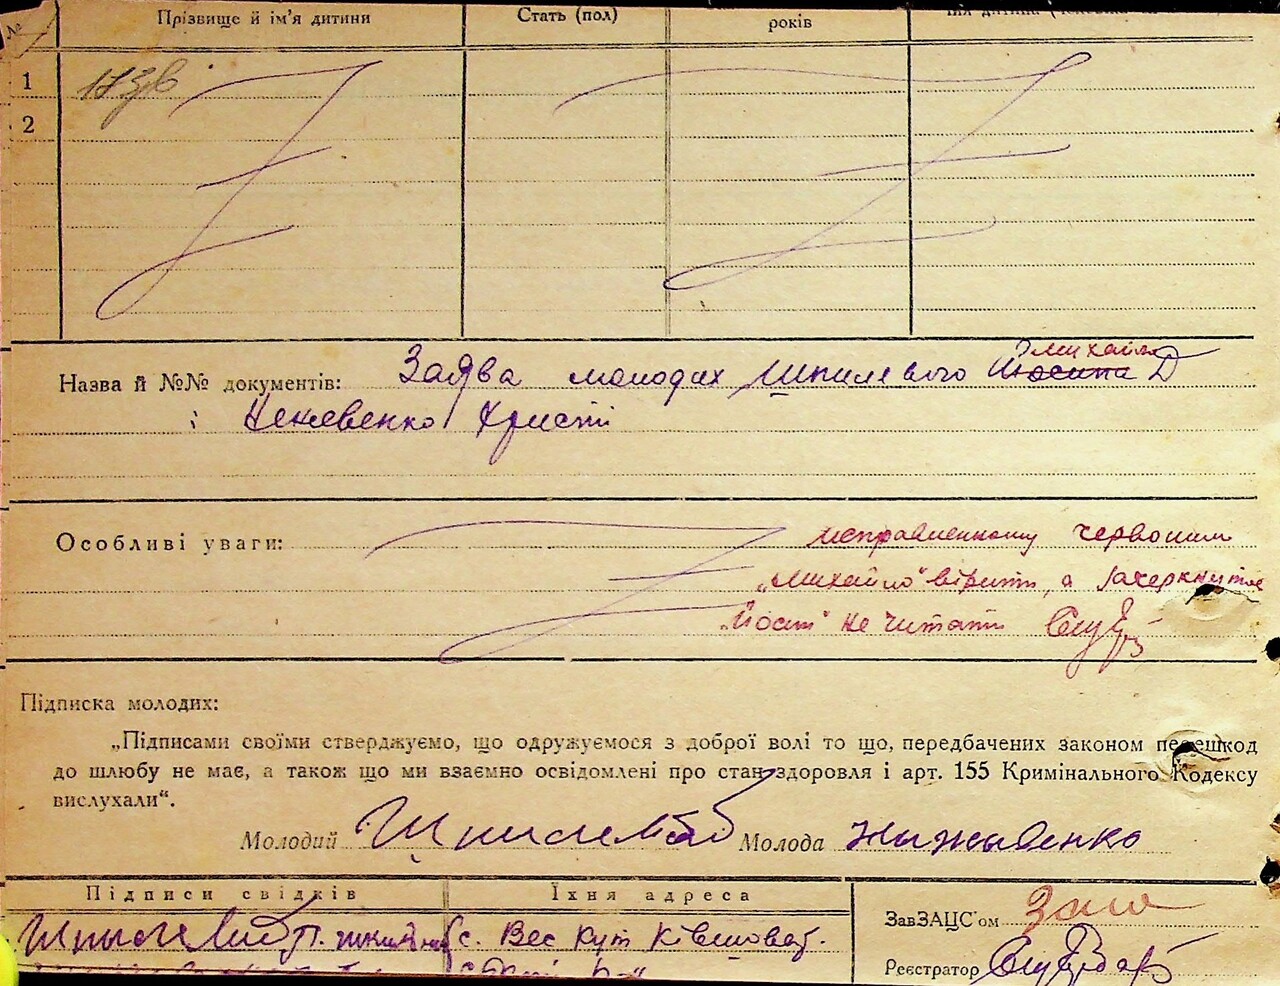 № Прізвище й ім’я дитини Стать (пол) років
1
2
Назва й №№ документів: Заява молодих Шпилевого Йосипа Михайло Д
і Нежевенко Христі
Особливі уваги: исправленному червоним
„Михайло“ вірити, а зачеркнутое
„Йосип“ не читати
Підписка молодих:
„Підписами своїми стверджуємо, що одружуємося з доброї волі то що, передбачених законом перешкод
до шлюбу не має, а також що ми взаємно освідомлені про стан здоровля і арт. 155 Кримінального Кодексу
вислухали“.
Молодий Молода Ныжывенко
Підписи свідків Їхня адреса
ЗавЗАЦС’ом
с. Вес Кут
Реєстратор